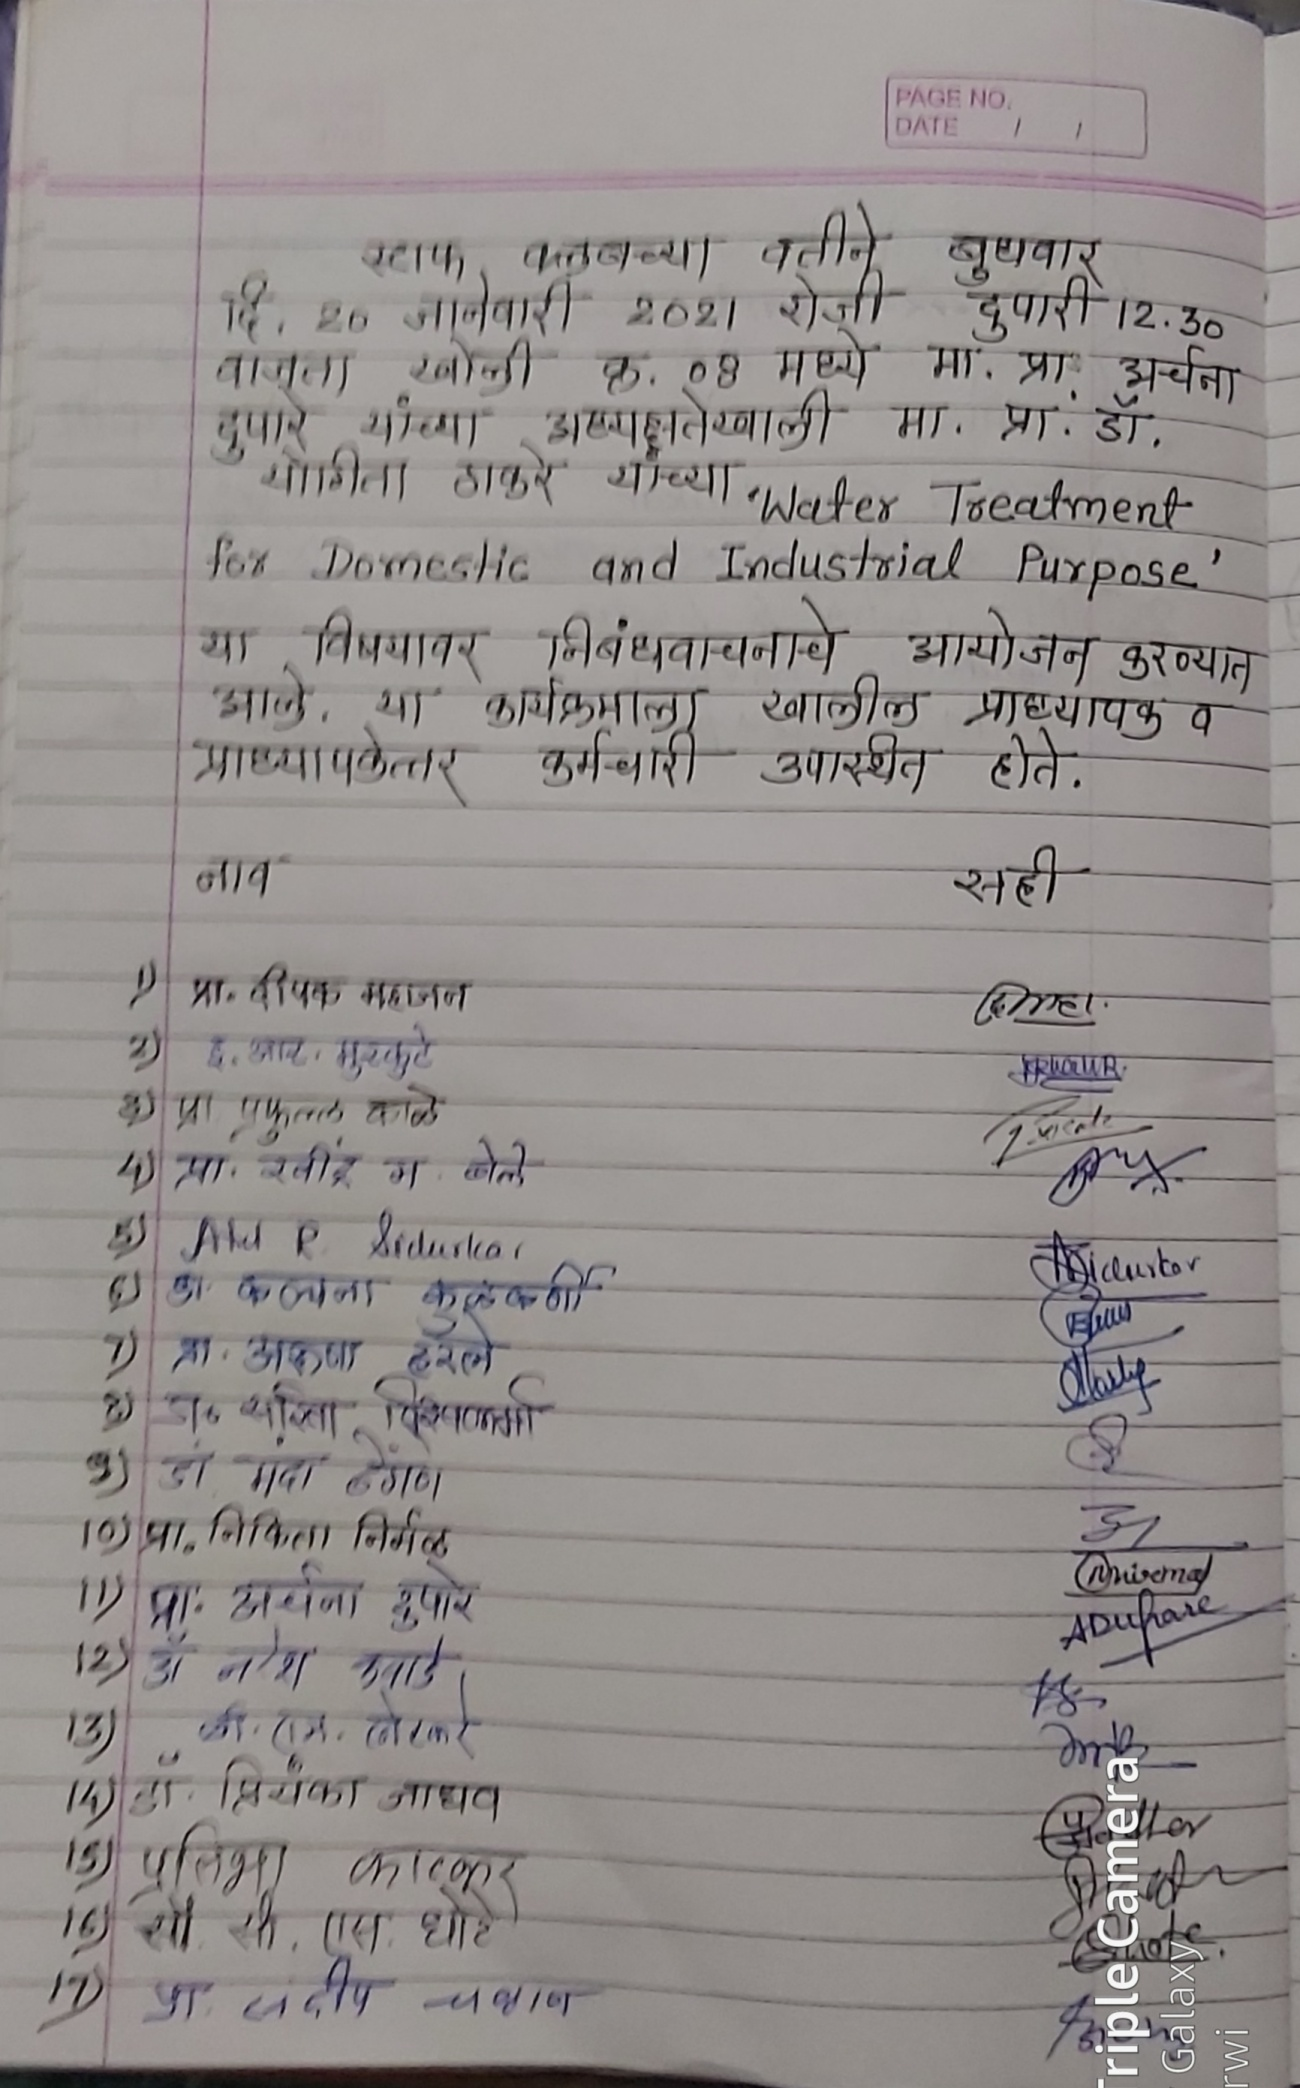 PAGE NO.
DATE / /
स्टाफ क्लबच्या वतीने बुधवार
दि. 20 जानेवारी 2021 रोजी दुपारी 12.30
वाजता खोली क्र. 08 मध्ये मा. प्रा. अर्चना
दुपारे यांच्या अध्यक्षतेखाली मा. प्रा. डॉ.
योगिता ठाकरे यांच्या 'Water Treatment
for Domestic and Industrial Purpose'
या विषयावर निबंधवाचनाचे आयोजन करण्यात
आले. या कार्यक्रमाला खालील प्राध्यापक व
प्राध्यापकेत्तर कर्मचारी उपास्थीत होते.
नाव सही
1) प्रा. दीपक महाजन
2) इ. आर. मुरकुटे
3) प्रा प्रफुल्ल काळे
4) प्रा. रवींद्र ग. बेले
5) Atul R. Sidurkar Sidurkar
6) डॉ. कल्पना कुळकर्णी
7) प्रा. अरुणा हरले
8) डॉ. सरिता विश्वकर्मा
9) डॉ मंदा ढेंगणे
10) प्रा. निकिता निर्मळ
11) प्रा. अर्चना दुपारे ADupare
12) डॉ नरेश कवाडे
13) एम.
14) डॉ. प्रियंका जाधव
15) प्रतिभा काटकर
16) सौ. सी. एस. धोटे
17) प्रा. संदीप चव्हाण
Triple Camera
Galaxy
rwi